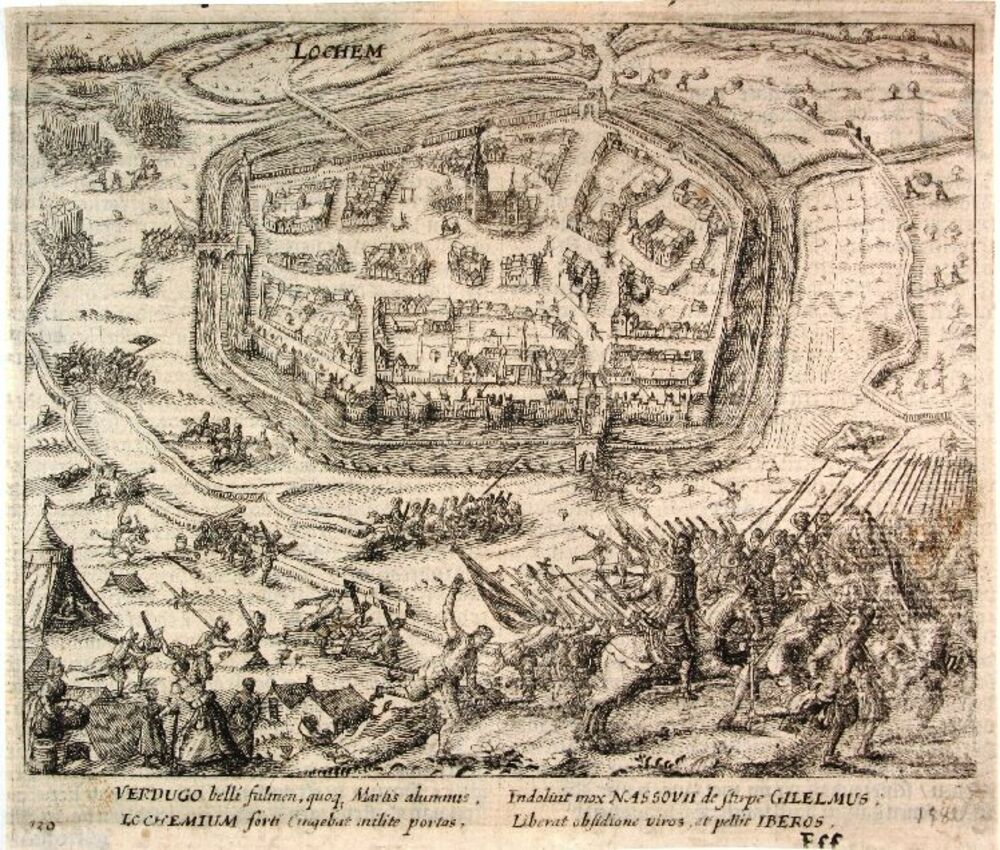 LOCHEM
VERDUGO belli fulmen, quoq, Martis alumnus,
LOCHEMIUM forti cingebat milite portas,
Indoluit mox NASSOVII de stirpe GILELMUS;
Liberat obsidione viros, et pellit IBEROS.
120
158
Fff